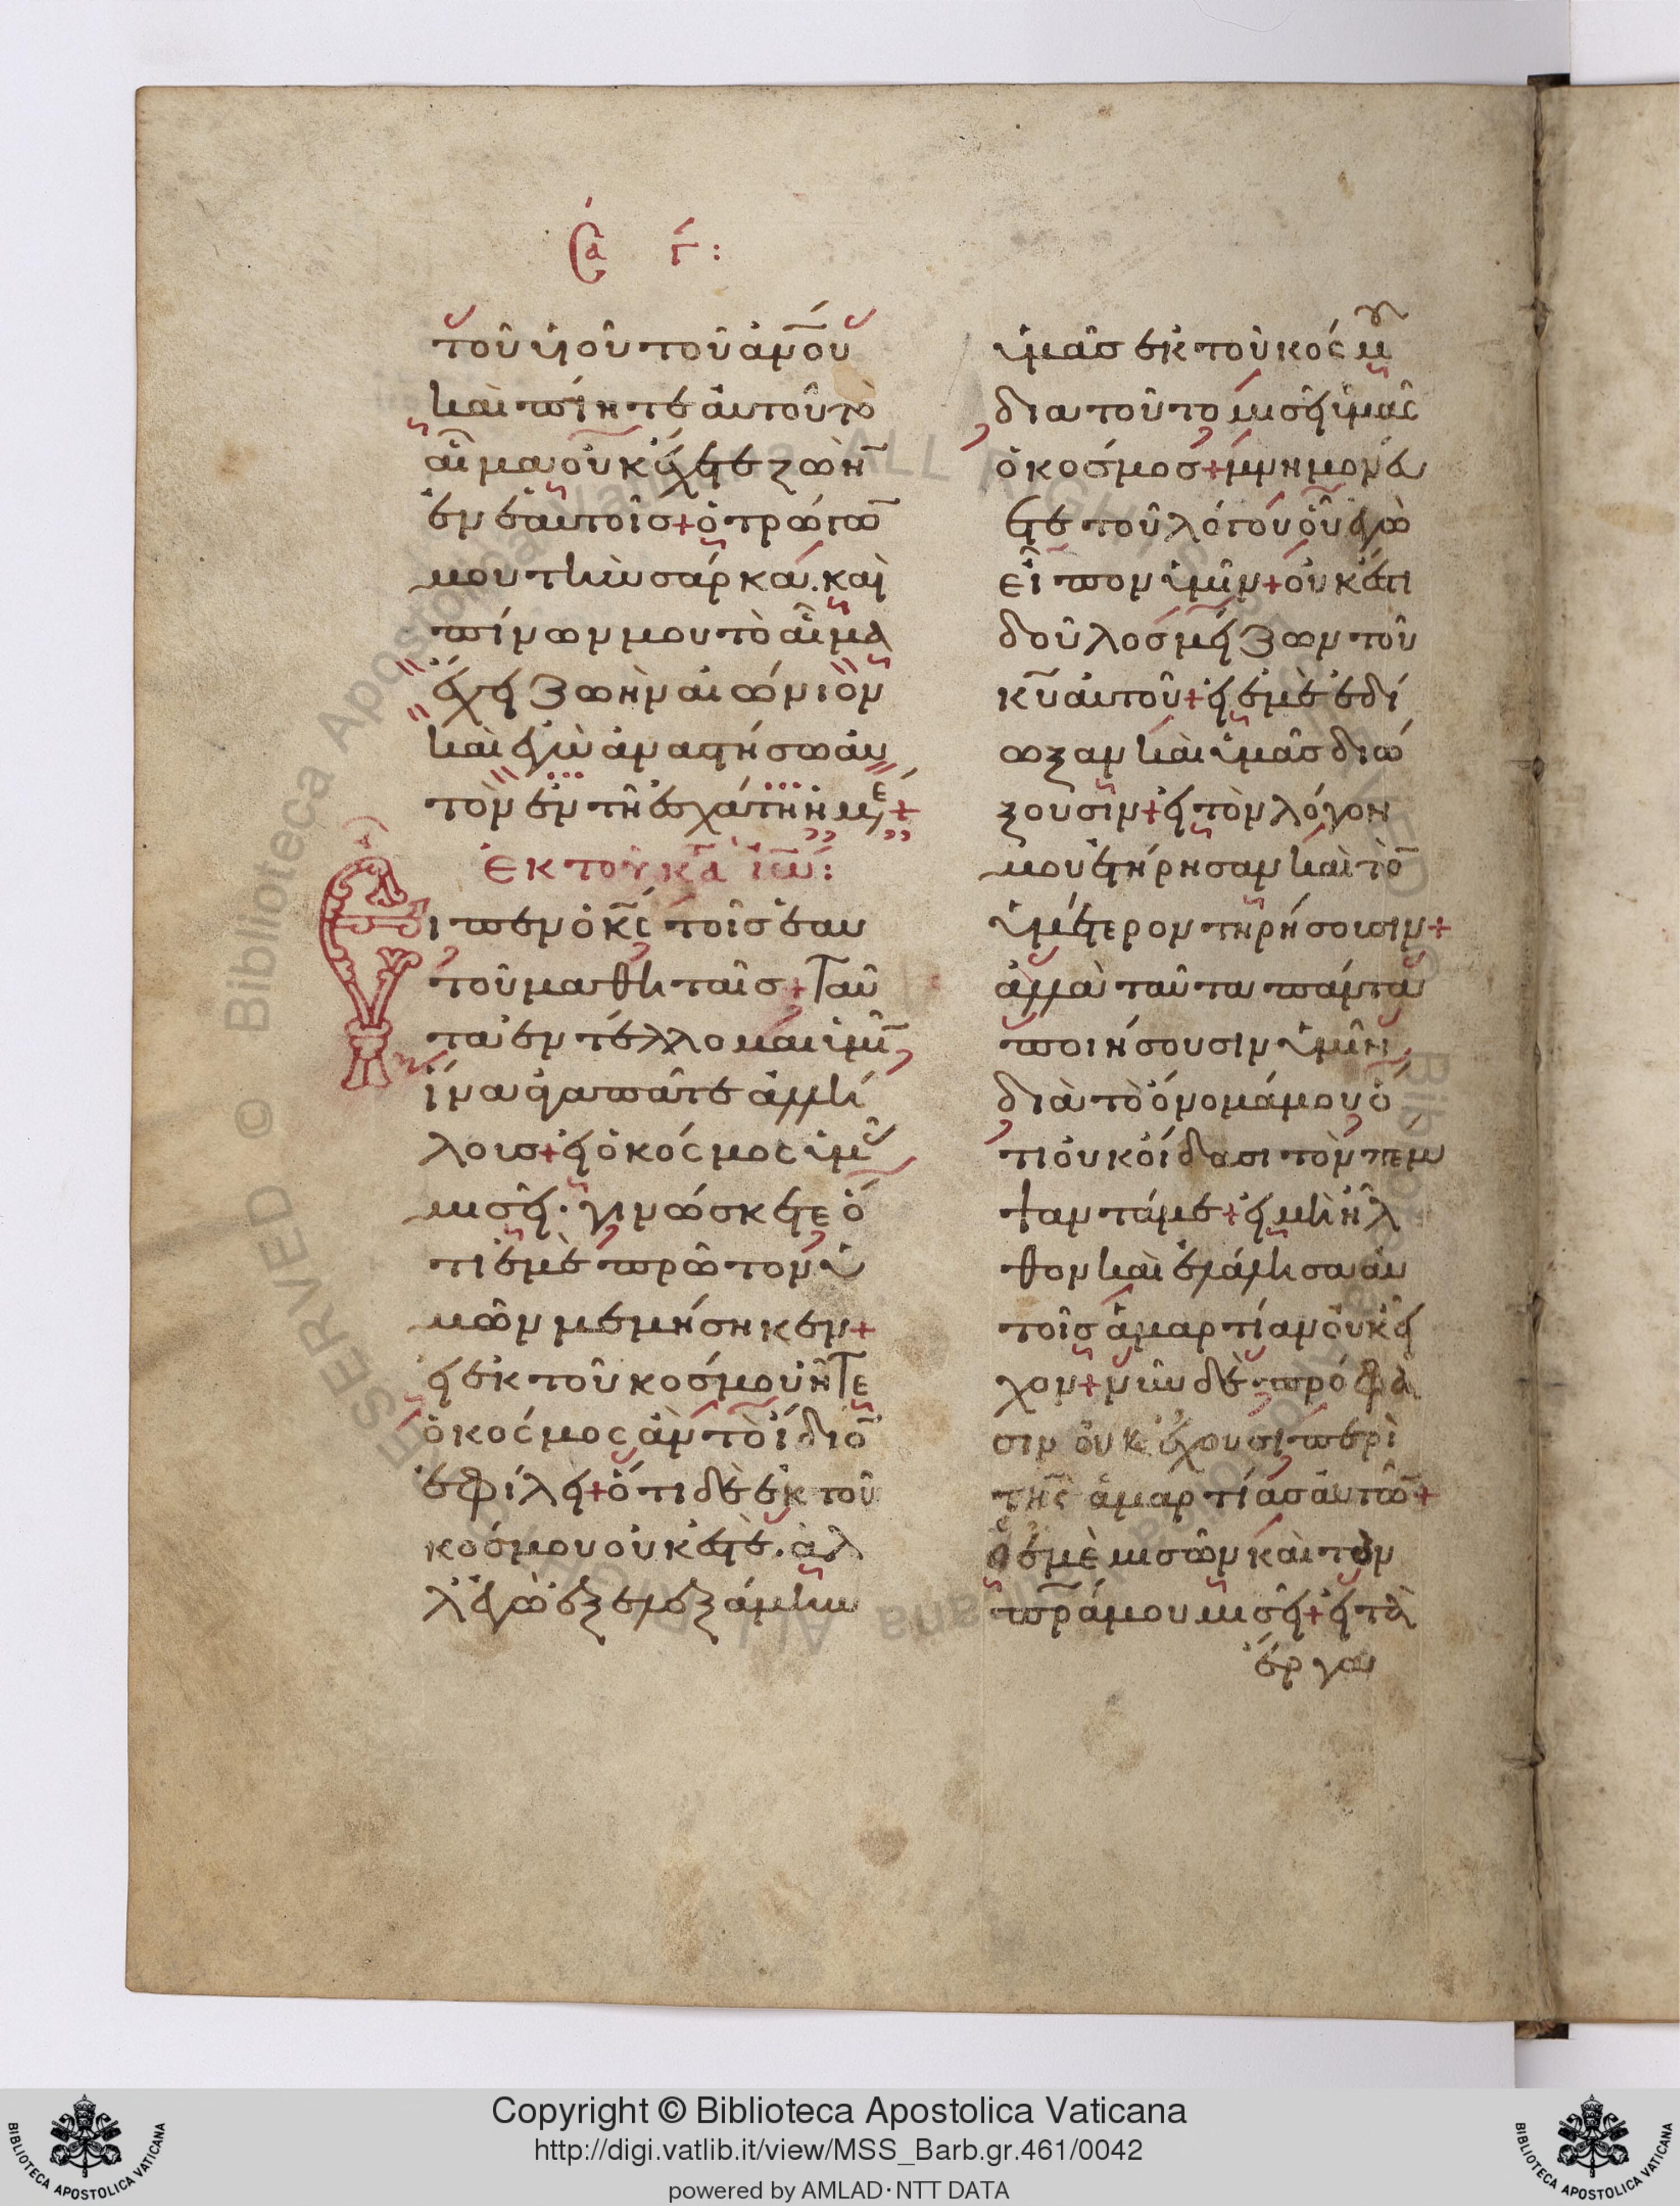 Σα Γ:
τοῦ υἱοῦ τοῦ ἀν̅ου
καὶ πίητε αὐτοῦ τὸ
αἷμα οὐκ ἔχετε ζωὴ̅
ἐν ἑαυτοῖς + ὁ τρώγω̅
μου τὴν σάρκα. καὶ
πίνων μου τὸ αἷμα
ἔχει ζωὴν αἰώνιον
καὶ ἐγὼ ἀναστήσω αὐ
τὸν ἐν τῆ ἐσχάτη ἡμε +
ἐκ τοῦ κα ἰω:
Εἶπεν ὁ κ̅ς τοῖς ἑαυ
τοῦ μαθηταῖς + Ταῦ
τα ἐντέλλομαι ὑμῖ̅
ἵνα ἀγαπᾶτε ἀλλή
λοις + εἰ ὁ κόσμος ὑμᾶ
μισεῖ · γινώσκετε ὅ
τι ἐμὲ πρῶτον ὑ
μῶν μεμήσηκεν +
εἰ ἐκ τοῦ κοσμου ἦτε
ὁ κόσμος ἂν τὸ ἴδιο̅
ἐφίλει + ὅτι δὲ ἐκ τοῦ
κόσμου οὐκ ἐστὲ. ἀλ
λ' ἐγὼ ἐξελεξάμην
ὑμᾶς ἐκ τοὺ κόσμου
δια τοῦτο μισεῖ ὑμᾶς
ὁ κόσμος + μνημονεύ
ετε τοῦ λόγου οὗ ἐγὼ
εἶπον ὑμῖν + οὐκ ἔστι
δοῦλος μείζων τοῦ
κ̅υ αὐτοῦ + εἰ ἐμὲ ἐδί
ωξαν καὶ ὑμᾶς διώ
ξουσιν + εἰ τὸν λόγον
μου ἐτήρησαν καὶ τὸ̅
ὑμέτερον τηρήσουσιν +
ἀλλὰ ταῦτα πάντα
ποιήσουσιν ὑμῖν
διὰ τὸ ὄνομά μου ὅ
τι οὐκ οἴδασι τὸν πέμ
ψαντά με + εἰ μὴ ἦλ
θον καὶ ἐλάλησα αὐ
τοῖς ἁμαρτίαν οὐκ εἶ
χον + νῦν δὲ πρόφα
σιν οὐκ ἔχουσι περὶ
τῆς ἁμαρτίας αὐτῶ̅ +
ὁ ἐμὲ μισῶν καὶ τὸν
π̅ρα μου μισεῖ + εἰ τὰ
ἔργα
Copyright © Biblioteca Apostolica Vaticana
http://digi.vatlib.it/view/MSS_Barb.gr.461/0042
powered by AMLAD·NTT DATA